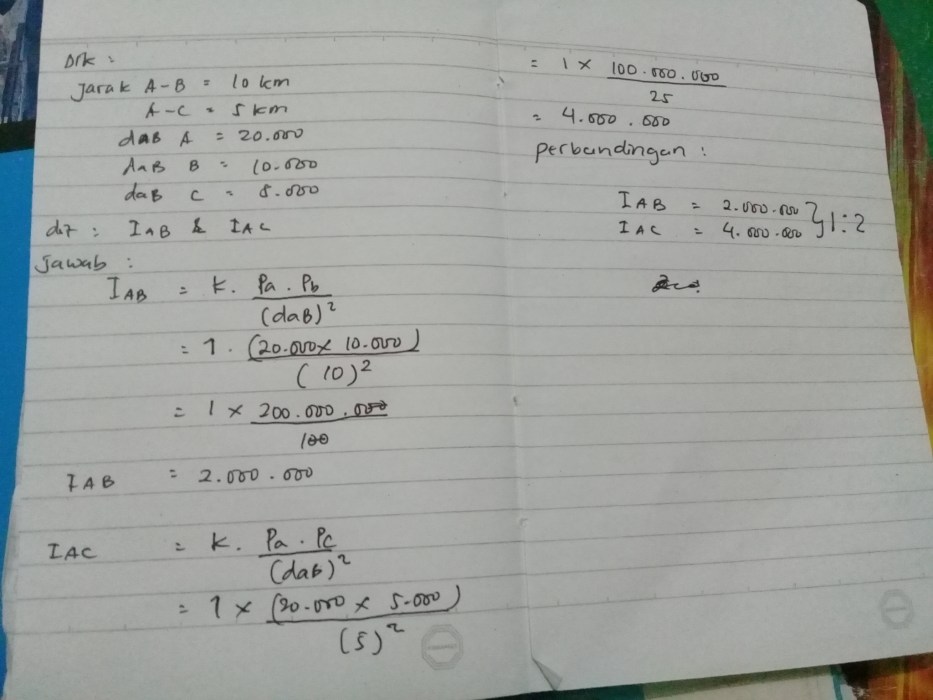 Dik :
Jarak A-B = 10 km
A-C = 5 km
daB A = 20.000
daB B = 10.000
daB C = 5.000
dit : IAB & IAC
Jawab :
IAB = k. Pa . Pb
(daB)²
= 1 . (20.000 x 10.000)
(10)²
= 1 x 200.000.000
100
IAB = 2.000.000
IAC = k. Pa . Pc
(daB)²
= 1 x (20.000 x 5.000)
(5)²
= 1 x 100.000.000
25
= 4.000.000
perbandingan :
IAB = 2.000.000
IAC = 4.000.000 } 1:2